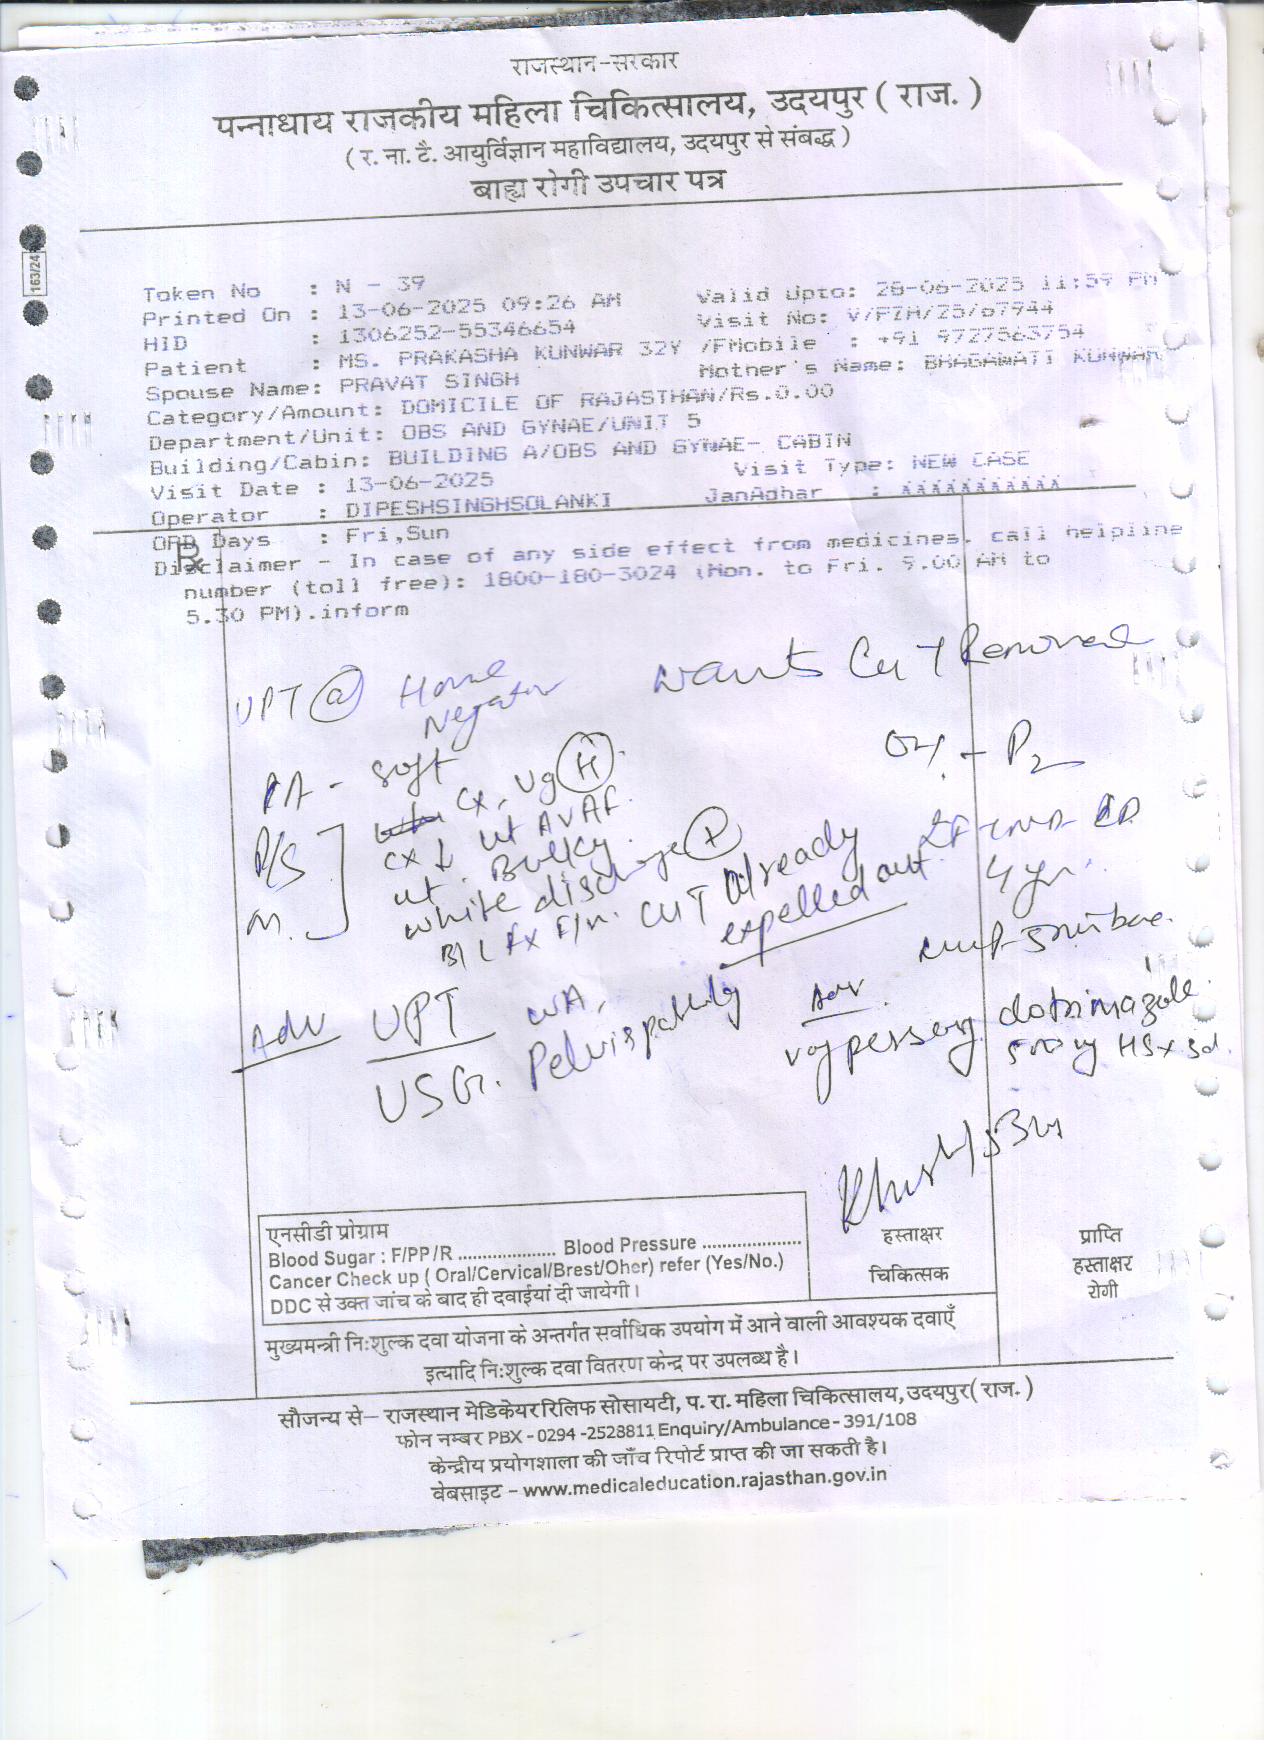 राजस्थान-सरकार
पन्नाधाय राजकीय महिला चिकित्सालय, उदयपुर ( राज. )
( र. ना. टै. आयुर्विज्ञान महाविद्यालय, उदयपुर से संबद्ध )
बाह्य रोगी उपचार पत्र
163/24
Token No : N - 39
Printed On : 13-06-2025 09:26 AM Valid Upto: 28-06-2025 11:59 PM
HID : 1306252-55346654 Visit No: V/PZH/25/67944
Patient : MS. PRAKASHA KUNWAR 32Y /F Mobile : +91 9727563754
Spouse Name: PRAVAT SINGH Mother's Name: BHAGAWATI KUNWAR
Category/Amount: DOMICILE OF RAJASTHAN/Rs.0.00
Department/Unit: OBS AND GYNAE/UNIT 5
Building/Cabin: BUILDING A/OBS AND GYNAE- CABIN
Visit Date : 13-06-2025 Visit Type: NEW CASE
Operator : DIPESHSINGHSOLANKI JanAdhar :
OPD Days : Fri,Sun
Rx
Disclaimer - In case of any side effect from medicines, call helpline
number (toll free): 1800-180-3024 (Mon. to Fri. 9.00 AM to
5.30 PM).inform
UPT @ Home wants CuT Removal
Negative
PA - soft P2
P/S Cx, vg (H)
Cx ↓ ut AVAF
ut Bulky
white discharge (+) 4 yr.
B/L Fx F/n. CuT already
expelled out
Adv UPT Adv. clotrimazole
USG. Pelvis vg pessary HS x 3d.
एनसीडी प्रोग्राम
Blood Sugar : F/PP/R .................... Blood Pressure ....................
Cancer Check up ( Oral/Cervical/Brest/Oher) refer (Yes/No.)
DDC से उक्त जांच के बाद ही दवाईयां दी जायेगी।
हस्ताक्षर
चिकित्सक
प्राप्ति
हस्ताक्षर
रोगी
मुख्यमन्त्री निःशुल्क दवा योजना के अन्तर्गत सर्वाधिक उपयोग में आने वाली आवश्यक दवाएँ
इत्यादि निःशुल्क दवा वितरण केन्द्र पर उपलब्ध है।
सौजन्य से– राजस्थान मेडिकेयर रिलिफ सोसायटी, प. रा. महिला चिकित्सालय, उदयपुर( राज. )
फोन नम्बर PBX - 0294 -2528811 Enquiry/Ambulance - 391/108
केन्द्रीय प्रयोगशाला की जाँच रिपोर्ट प्राप्त की जा सकती है।
वेबसाइट – www.medicaleducation.rajasthan.gov.in